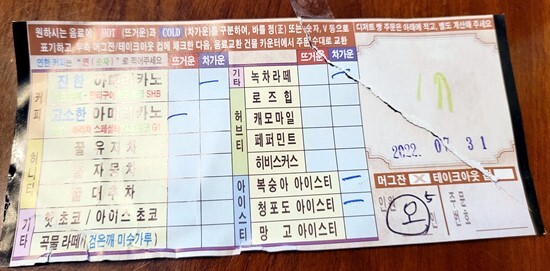 원하시는 음료에 HOT (뜨거운)과 COLD (차가운)을 구분하여, 바를 정(正) 또는 숫자, V 등으로
표기하고, 우측 머그잔/테이크아웃 컵에 체크한 다음, 음료교환 건물 카운터에서 주문 수대로 교환
연한 커피는 "연(숫자)"로 적어주세요
뜨거운 차가운
커피
진한 아메리카노
SHB
고소한 아메리카노
G1
허니티
꿀 유자차
꿀 자몽차
꿀 대추차
기타
핫 초코 / 아이스 초코
곡물 라떼 (검은깨 미숫가루)
뜨거운 차가운
기타
녹차라떼
허브티
로즈힙
캐모마일
페퍼민트
히비스커스
아이스티
복숭아 아이스티
청포도 아이스티
망고 아이스티
디저트 빵 주문은 아래에 적고, 별도 계산해 주세요
2022. 07. 31
머그잔 테이크아웃
인원 5 명
오
주문번호